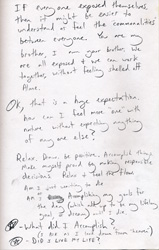 If every one exposed themselves,
then it might be easier to
understand or feel the commonalities
between everyone. You are my
brother, I am your brother. We
are all exposed & we can work
together without feeling shelled off
Alone.
Ok, that is a huge expectation,
how can I feel more one with
nature without expecting anything
of any one else?
Relax, Draw, be positive, Accomplish things,
Make myself proud by making responsible
decisions. Relax & feel the flow
Am I just waiting to die
Am I Accomplishing my goals for
the day, which ought to be my lifelong
goal or dreams until I die.
What did I Accomplish?
Did I LIVE MY LIFE?